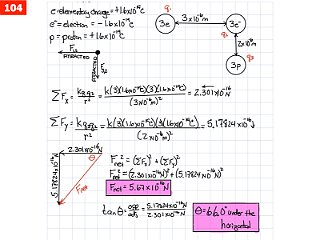 104
e = elementary charge = +1.6x10⁻¹⁹C
e⁻ = electron = -1.6x10⁻¹⁹C
p = proton = +1.6x10⁻¹⁹C
q₁ q₂
3e 3x10⁻⁶m 3e⁻
2x10⁻⁶m
q₃
3p
ATTRACTED
ATTRACTED
ΣFx = kq₁q₂/r² = k(3)(1.6x10⁻¹⁹C)(3)(1.6x10⁻¹⁹C)/(3x10⁻⁶m)² = 2.301x10⁻¹⁶N
ΣFy = kq₂q₃/r² = k(3)(1.6x10⁻¹⁹C)(3)(1.6x10⁻¹⁹C)/(2x10⁻⁶m)² = 5.17824x10⁻¹⁶N
2.301x10⁻¹⁶N
θ
5.17824x10⁻¹⁶N
Fnet
Fnet² = (ΣFx)² + (ΣFy)²
Fnet² = (2.301x10⁻¹⁶N)² + (5.17824x10⁻¹⁶N)²
Fnet = 5.67x10⁻¹⁶N
tanθ = opp/adj = 5.17824x10⁻¹⁶N/2.301x10⁻¹⁶N
θ = 66.0° under the
horizontal